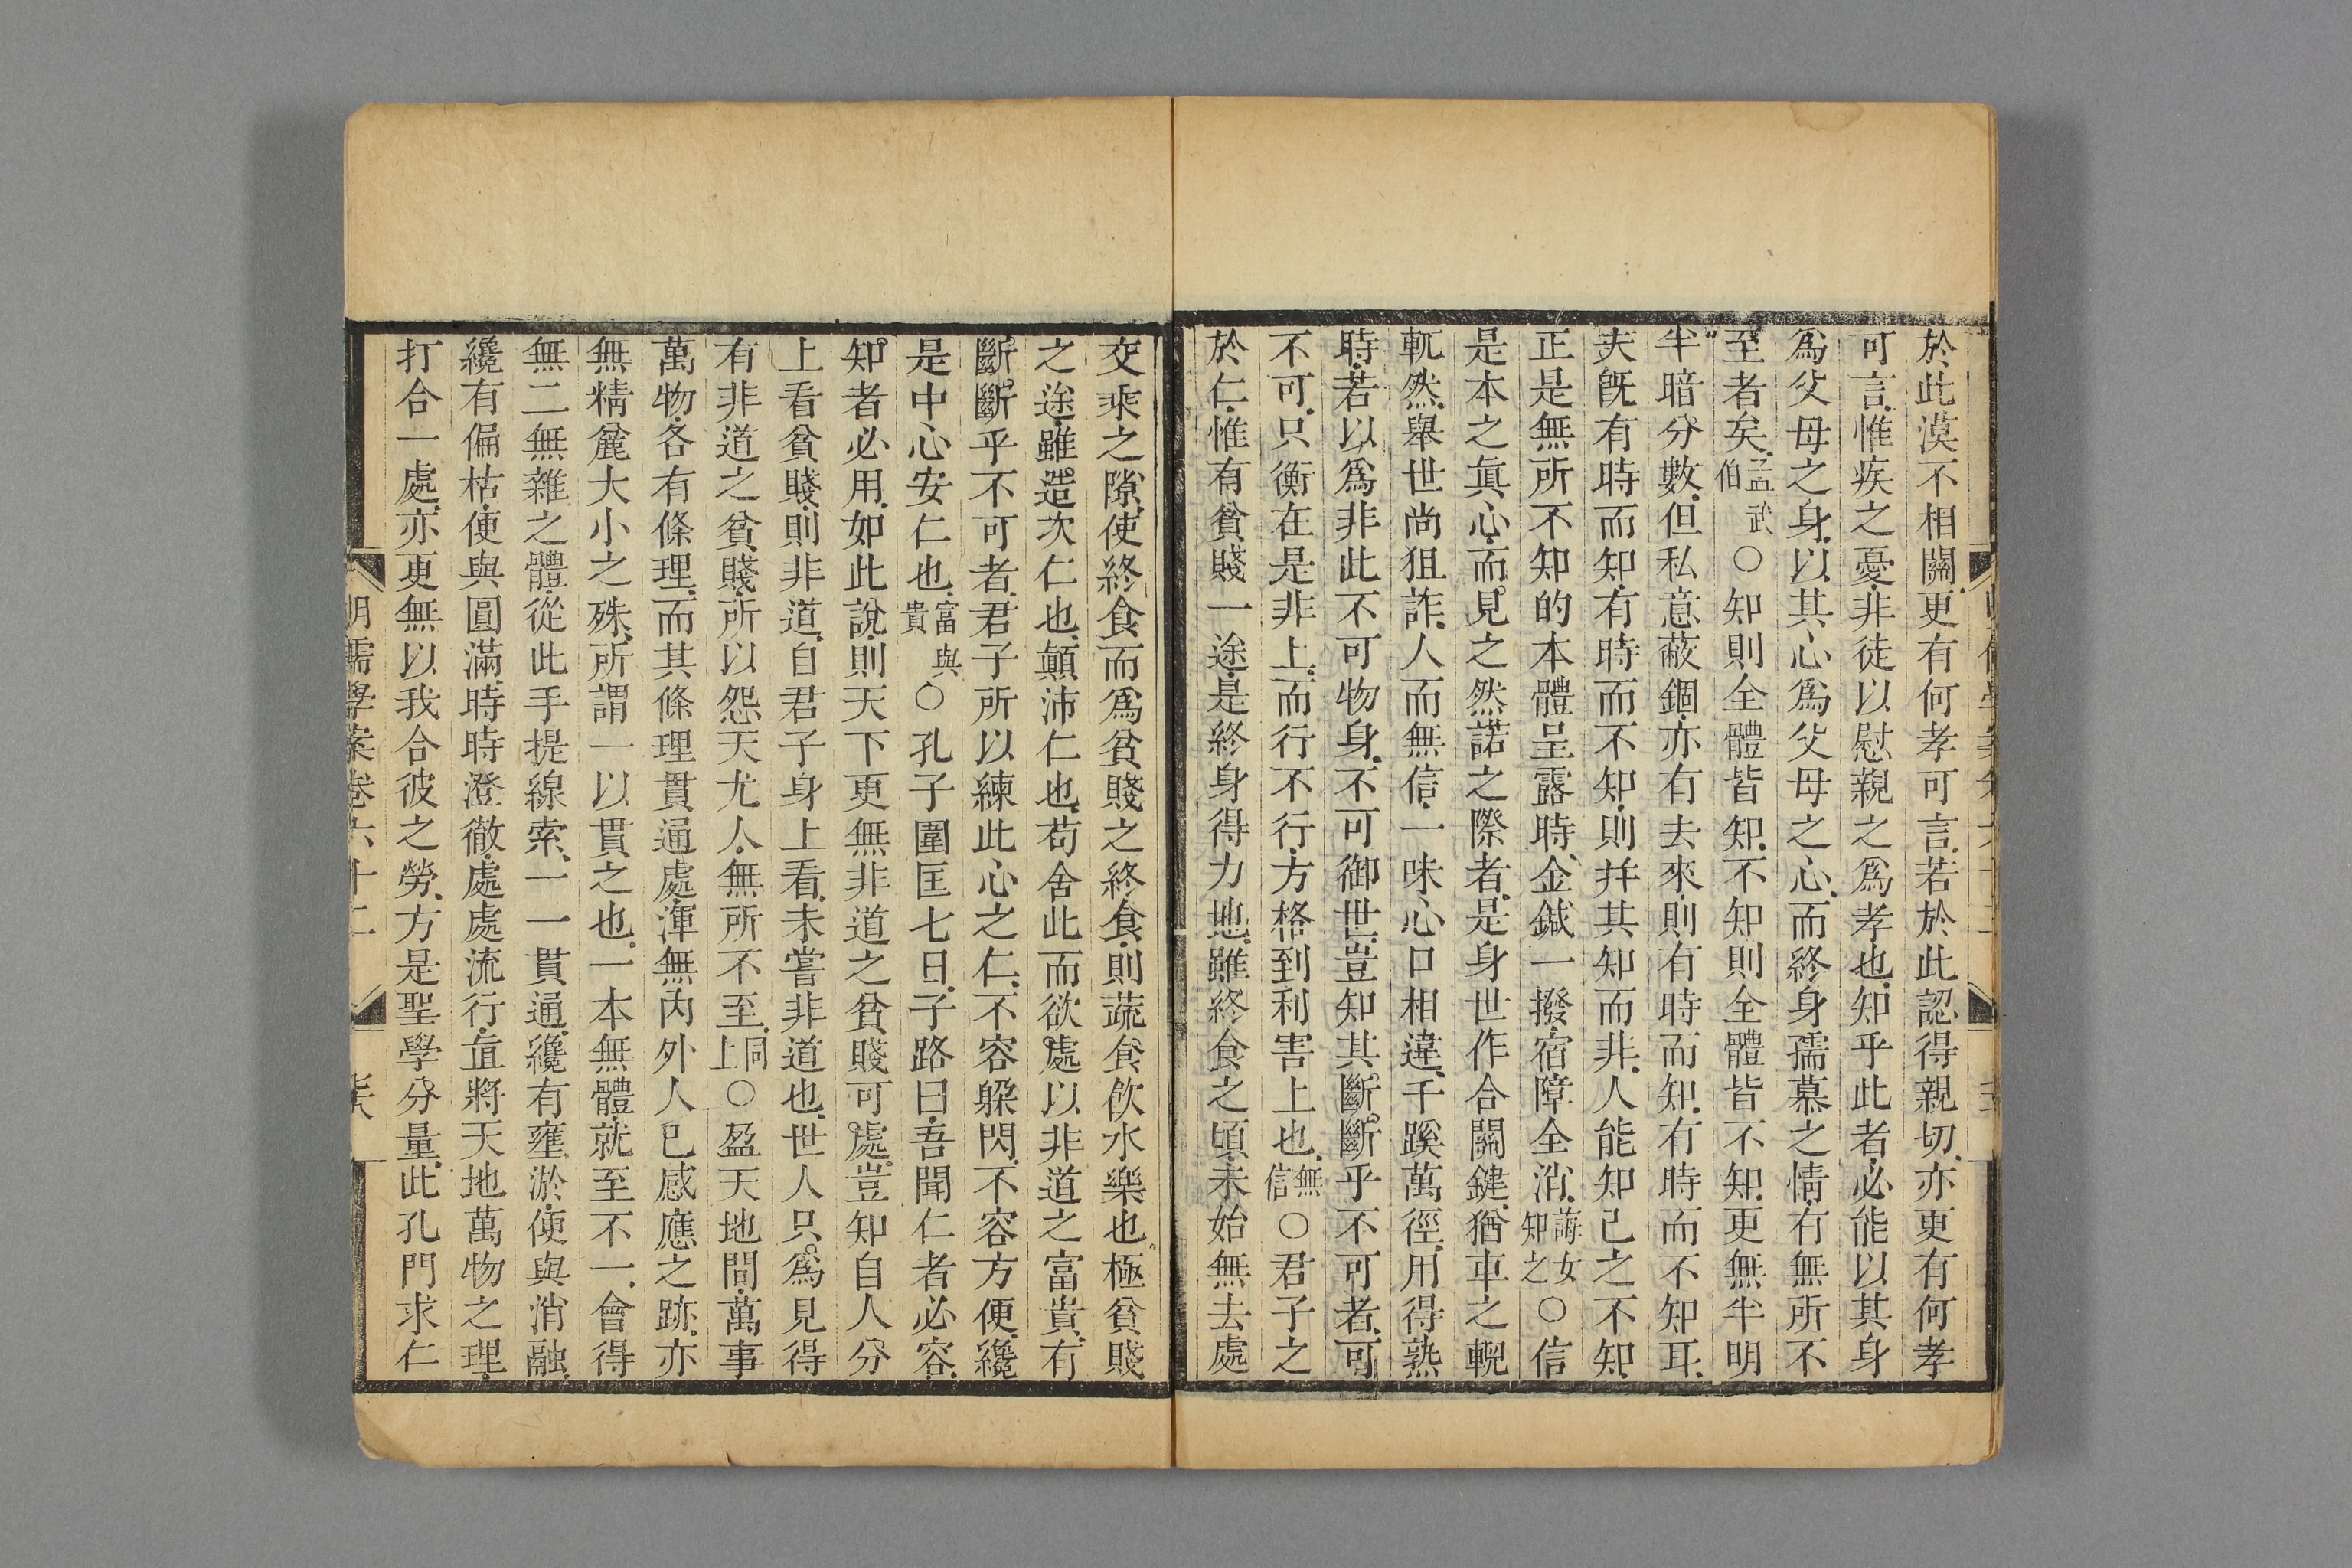 於此漠不相關更有何孝可言若於此認得親切亦更有何孝
可言惟疾之憂非徒以慰親之爲孝也知乎此者必能以其身
爲父母之身以其心爲父母之心而終身孺慕之情有無所不
至者矣孟武伯○知則全體皆知不知則全體皆不知更無半明
半暗分數但私意蔽錮亦有去來則有時而知有時而不知耳
夫旣有時而知有時而不知則幷其知而非人能知己之不知
正是無所不知的本體呈露時金鍼一撥宿障全消誨女知之○信
是本之眞心而見之然諾之際者是身世作合關鍵猶車之輗
軏然舉世尚狙詐人而無信一味心口相違千蹊萬徑用得熟
時若以爲非此不可物身不可御世豈知其斷斷乎不可者可
不可只衡在是非上而行不行方格到利害上也無信○君子之
於仁惟有貧賤一途是終身得力地雖終食之頃未始無去處
交乘之隙使終食而爲貧賤之終食則蔬食飮水樂也極貧賤
之途雖造次仁也顛沛仁也苟舍此而欲處以非道之富貴有
斷斷乎不可者君子所以練此心之仁不容躱閃不容方便纔
是中心安仁也富與貴○孔子圍匡七日子路曰吾聞仁者必容
知者必用如此說則天下更無非道之貧賤可處豈知自人分
上看貧賤則非道自君子身上看未嘗非道也世人只爲見得
有非道之貧賤所以怨天尤人無所不至同上○盈天地間萬事
萬物各有條理而其條理貫通處渾無內外人已感應之跡亦
無精麄大小之殊所謂一以貫之也一本無體就至不一會得
無二無雜之體從此手提線索一一貫通纔有壅淤便與消融
纔有偏枯便與圓滿時時澄徹處處流行直將天地萬物之理
打合一處亦更無以我合彼之勞方是聖學分量此孔門求仁
明儒學案卷六十二